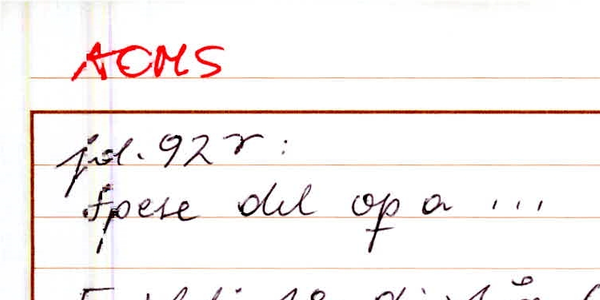 ACMS
fol. 92 r:
Spese del opa ...